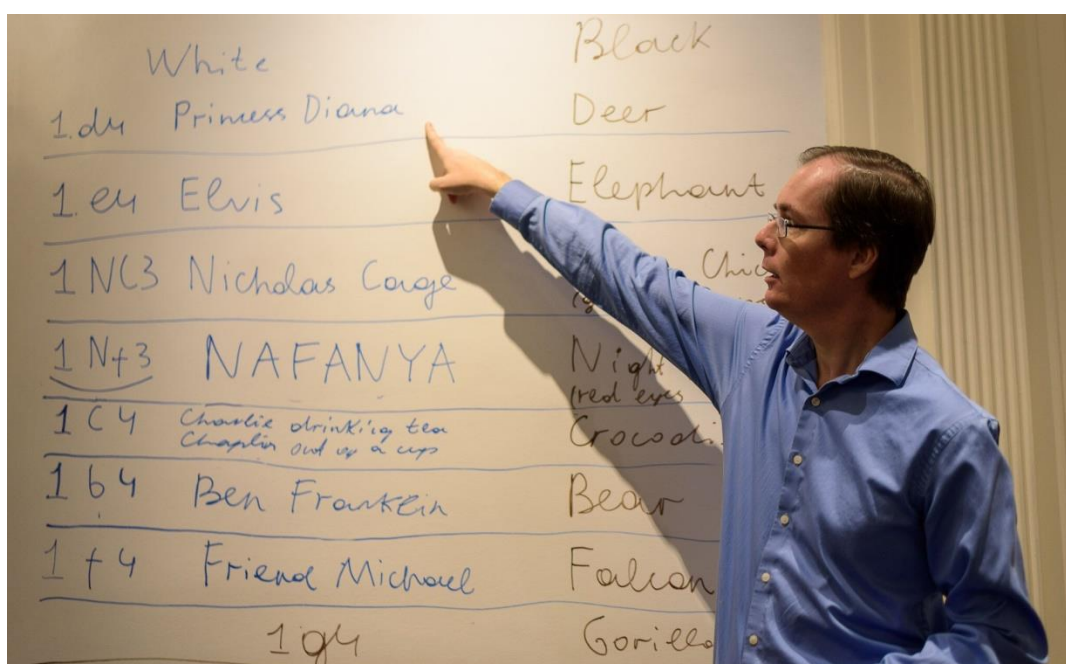 White Black
1.d4 Princess Diana Deer
1.e4 Elvis Elephant
1 NC3 Nicholas Cage
1 Nf3 NAFANYA Night
(red eyes
1 C4 Charlie drinking tea
Chaplin out of a cup
1 b4 Ben Franklin Bear
1 f4 Friend Michael Falcon
1 g4 Gorilla